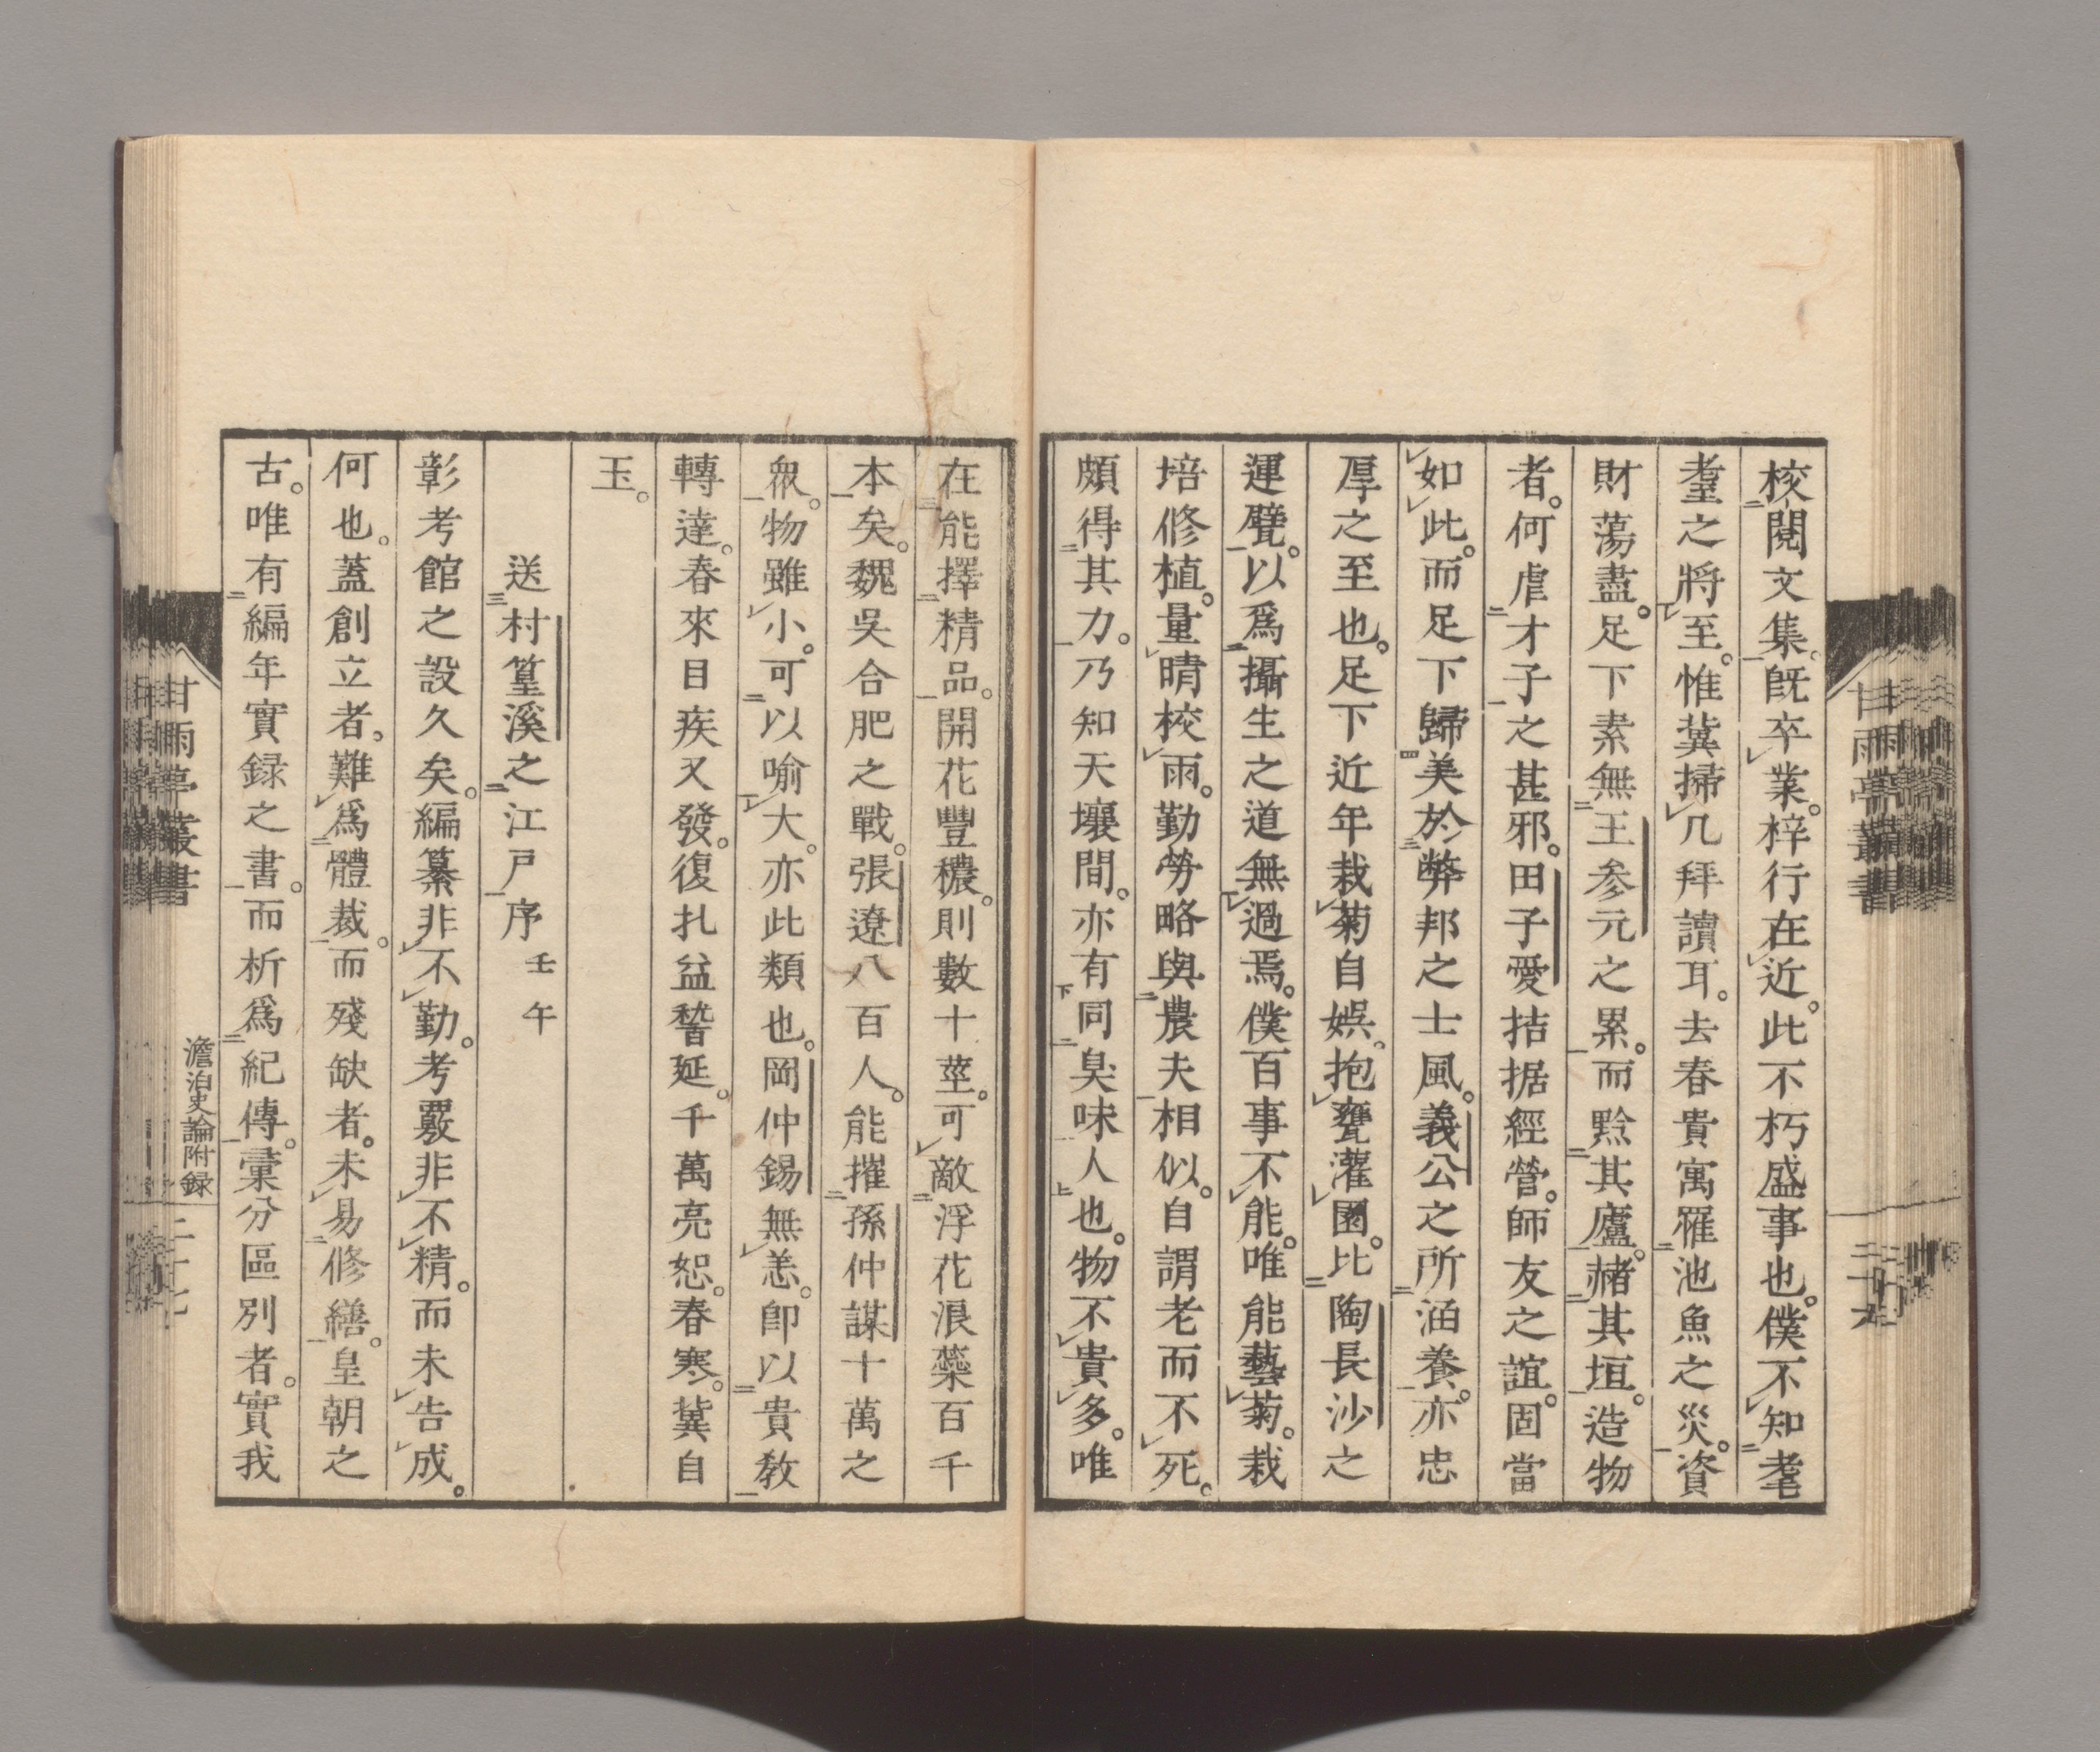 校閲文集。既卒業。梓行在近。此不朽盛事也。僕不知耄
耋之將至。惟冀掃几拜讀耳。去春貴寓罹池魚之災。資
財蕩盡。足下素無王参元之累。而黔其廬。赭其垣。造物
者。何虐才子之甚邪。田子愛拮据經營。師友之誼。固當
如此。而足下歸美於弊邦之士風。義公之所涵養。亦忠
厚之至也。足下近年栽菊自娯。抱甕灌園。比陶長沙之
運甓。以爲攝生之道無過焉。僕百事不能。唯能藝菊。栽
培修植。量晴校雨。勤勞略與農夫相似。自謂老而不死。
頗得其力。乃知天壤間。亦有同臭味人也。物不貴多。唯
在能擇精品。開花豐穠。則數十莖。可敵浮花浪蘂百千
本矣。魏吳合肥之戰。張遼八百人。能摧孫仲謀十萬之
衆。物雖小。可以喻大。亦此類也。岡仲錫無恙。卽以貴教
轉達。春來目疾又發。復扎益稽延。千萬亮恕。春寒。冀自
玉。
送村篁溪之江戸序 壬午
彰考館之設久矣。編纂非不勤。考覈非不精。而未告成。
何也。蓋創立者。難爲體裁。而殘缺者。未易修繕。皇朝之
古。唯有編年實録之書。而析爲紀傳。彙分區別者。實我
甘雨亭叢書
澹泊史論附録
二十七